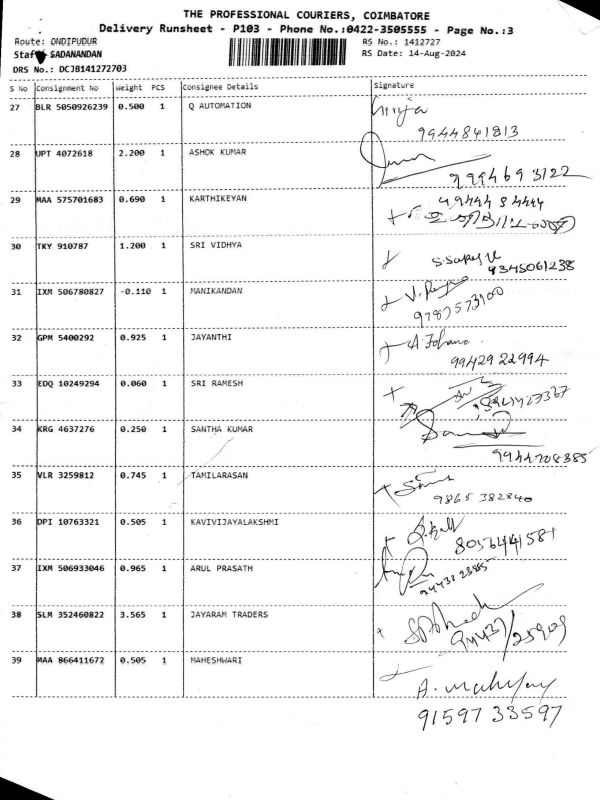 THE PROFESSIONAL COURIERS, COIMBATORE
Delivery Runsheet - P103 - Phone No.:0422-3505555 - Page No.:3
Route: ONDIPUDUR RS No.: 1412727
Staff SADANANDAN RS Date: 14-Aug-2024
DRS No.: DCJB141272703
S No Consignment No Weight PCS Consignee Details Signature
27 BLR 5050926239 0.500 1 Q AUTOMATION
9944841813
28 UPT 4072618 2.200 1 ASHOK KUMAR
999469 3122
29 MAA 575701683 0.690 1 KARTHIKEYAN
30 TKY 910787 1.200 1 SRI VIDHYA
9345061238
31 IXM 506780827 -0.110 1 MANIKANDAN
9787573100
32 GPM 5400292 0.925 1 JAYANTHI
99429 22994
33 EDQ 10249294 0.060 1 SRI RAMESH
34 KRG 4637276 0.250 1 SANTHA KUMAR
9944708385
35 VLR 3259812 0.745 1 TAMILARASAN
9865 382840
36 DPI 10763321 0.505 1 KAVIVIJAYALAKSHMI
37 IXM 506933046 0.965 1 ARUL PRASATH
38 SLM 352460822 3.565 1 JAYARAM TRADERS
39 MAA 866411672 0.505 1 MAHESHWARI
91597 33597